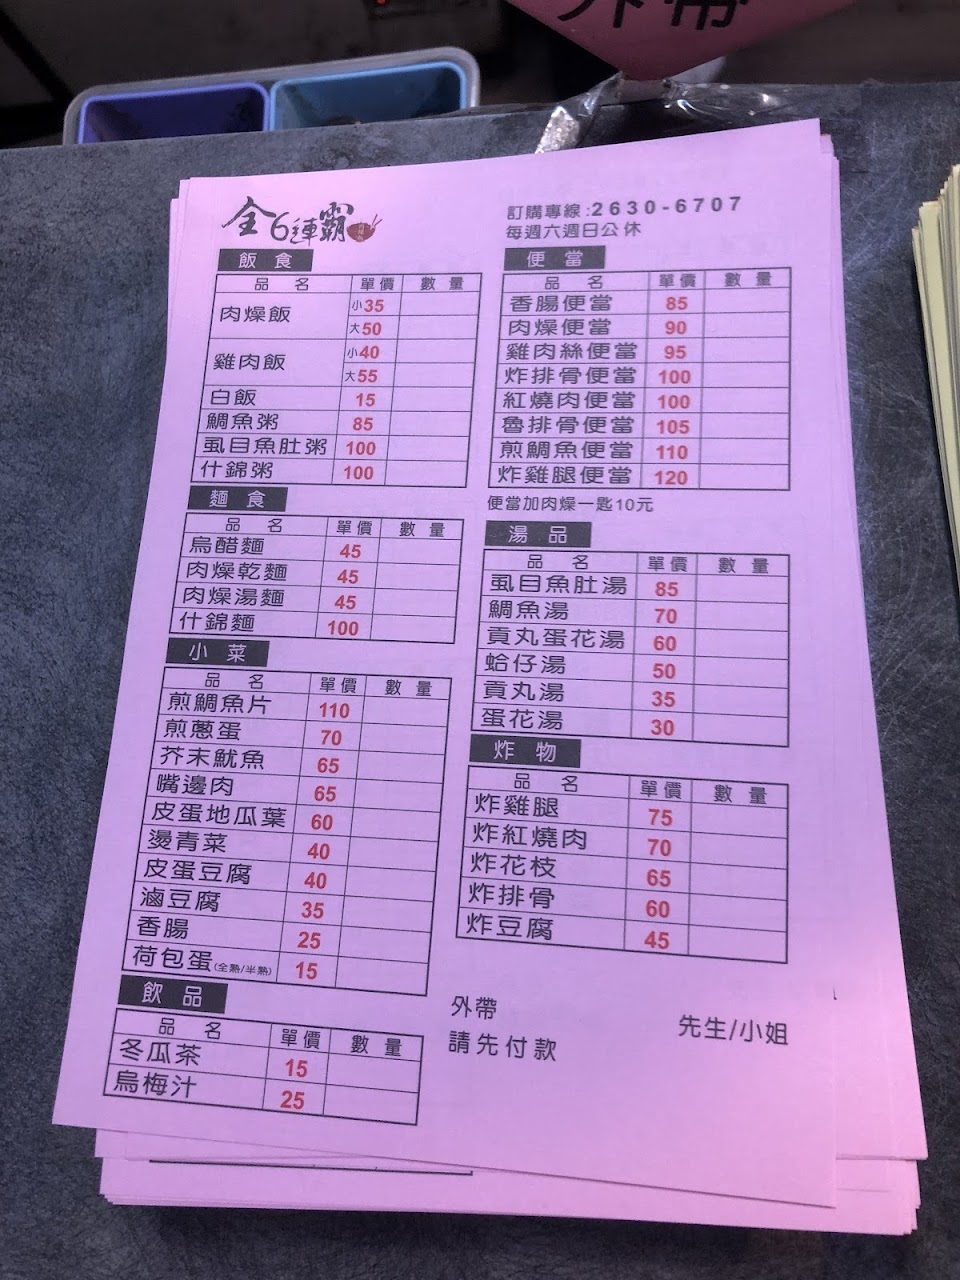 外帶
全6連霸
訂購專線:2630-6707
每週六週日公休
飯 食
品 名 單價 數 量
肉燥飯 小35
大50
雞肉飯 小40
大55
白飯 15
鯛魚粥 85
虱目魚肚粥 100
什錦粥 100
麵 食
品 名 單價 數 量
烏醋麵 45
肉燥乾麵 45
肉燥湯麵 45
什錦麵 100
小 菜
品 名 單價 數 量
煎鯛魚片 110
煎蔥蛋 70
芥末魷魚 65
嘴邊肉 65
皮蛋地瓜葉 60
燙青菜 40
皮蛋豆腐 40
滷豆腐 35
香腸 25
荷包蛋(全熟/半熟) 15
飲 品
品 名 單價 數 量
冬瓜茶 15
烏梅汁 25
便 當
品 名 單價 數 量
香腸便當 85
肉燥便當 90
雞肉絲便當 95
炸排骨便當 100
紅燒肉便當 100
魯排骨便當 105
煎鯛魚便當 110
炸雞腿便當 120
便當加肉燥一匙10元
湯 品
品 名 單價 數 量
虱目魚肚湯 85
鯛魚湯 70
貢丸蛋花湯 60
蛤仔湯 50
貢丸湯 35
蛋花湯 30
炸 物
品 名 單價 數 量
炸雞腿 75
炸紅燒肉 70
炸花枝 65
炸排骨 60
炸豆腐 45
外帶
請先付款
先生/小姐